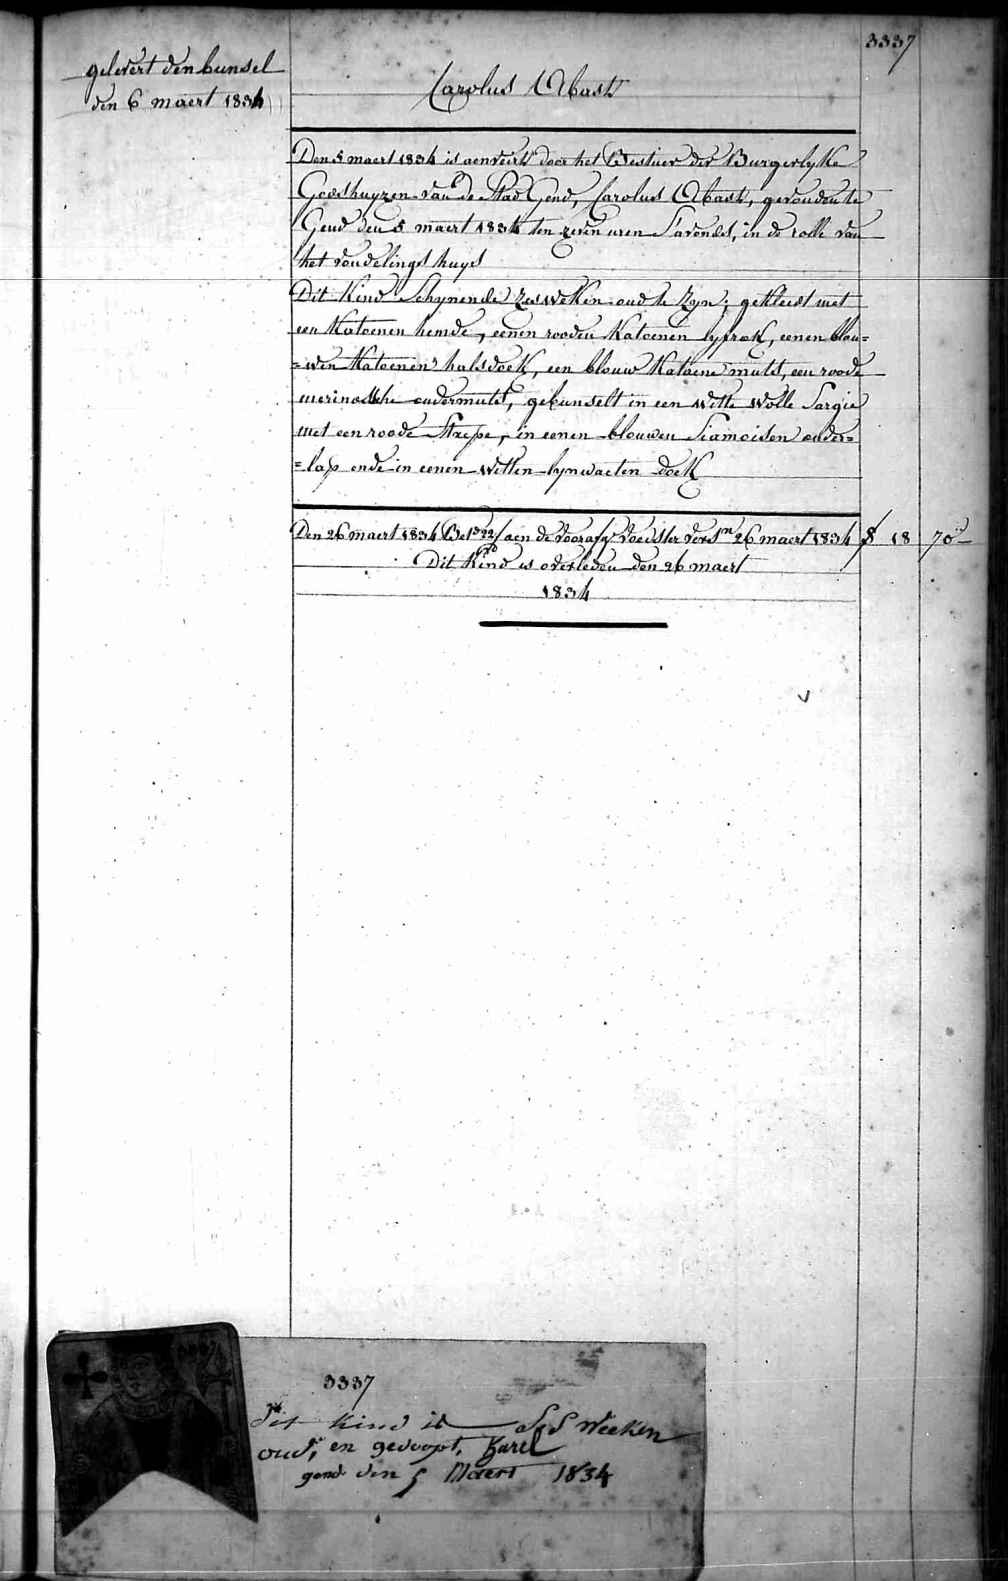 3337
gelevert den bunsel
den 6 maert 1834
Carolus Abast
Den 5 maert 1834 is aenveirt door het Bestuer der Burgerlyke
Godshuyzen van de Stad Gend, Carolus Abast, gevonden te
Gend den 5 maert 1834 ten zeven uren S'avonds, in de rolle van
het vondelings huys
Dit Kind Schynende zes weken oud te Zyn; gekleed met
een Katoenen hemde, eenen rooden Katoenen lyfrok, eenen blau=
=wen Katoenen halsdoek, een blouw Katoene muts, een roode
merinossche ondermuts, gebunselt in een witte wolle Sargie
met een roode Straepe, in eenen blouwen Siamoisen onder=
=lap ende in eenen witten lynwaeten doek
Den 26 maert 1834 Bet 22/ aen de voorafg voedster 26 maert 1834 f 18 70
Dit Kind is overleden den 26 maert
1834
3337
Dit kind is Ses Weeken
oud, en gedoopt, Karel
gend den 5 Maert 1834